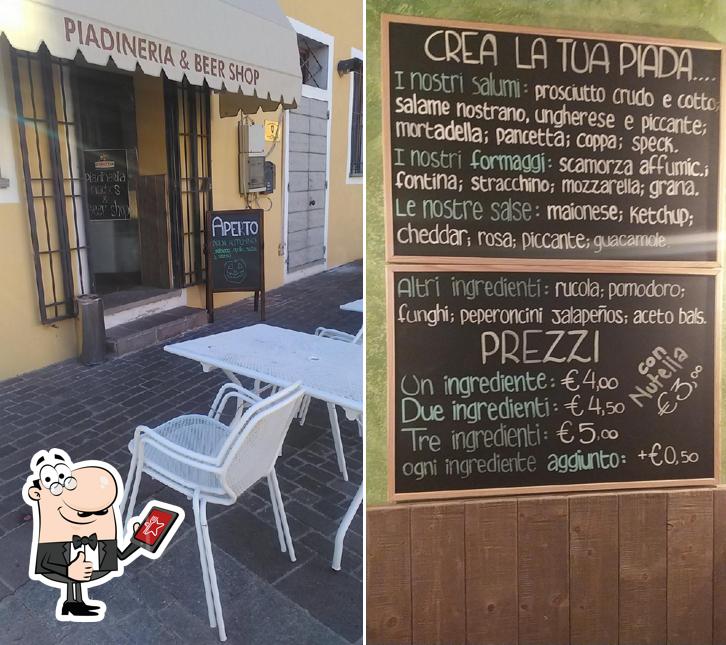 PIADINERIA & BEER SHOP
piadineria
& beer shop
APERTO
CREA LA TUA PIADA....
I nostri salumi: prosciutto crudo e cotto;
salame nostrano, ungherese e piccante;
mortadella; pancetta; coppa; speck.
I nostri formaggi: scamorza affumic.;
fontina; stracchino; mozzarella; grana.
Le nostre salse: maionese; ketchup;
cheddar; rosa; piccante; guacamole
Altri ingredienti: rucola; pomodoro;
funghi; peperoncini jalapeños; aceto bals.
PREZZI
Un ingrediente: €4,00
Due ingredienti: €4,50
Tre ingredienti: €5,00
ogni ingrediente aggiunto: +€0,50
con
Nutella
€3,00